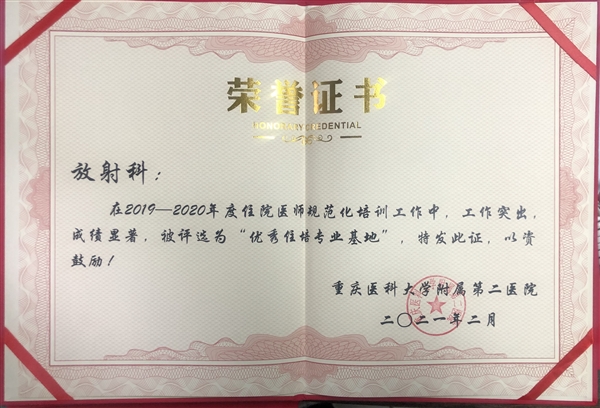 荣誉证书
HONORARY CREDENTIAL
放射科：
在2019—2020年度住院医师规范化培训工作中，工作突出，
成绩显著，被评选为“优秀住培专业基地”，特发此证，以资
鼓励！
重庆医科大学附属第二医院
二〇二一年二月